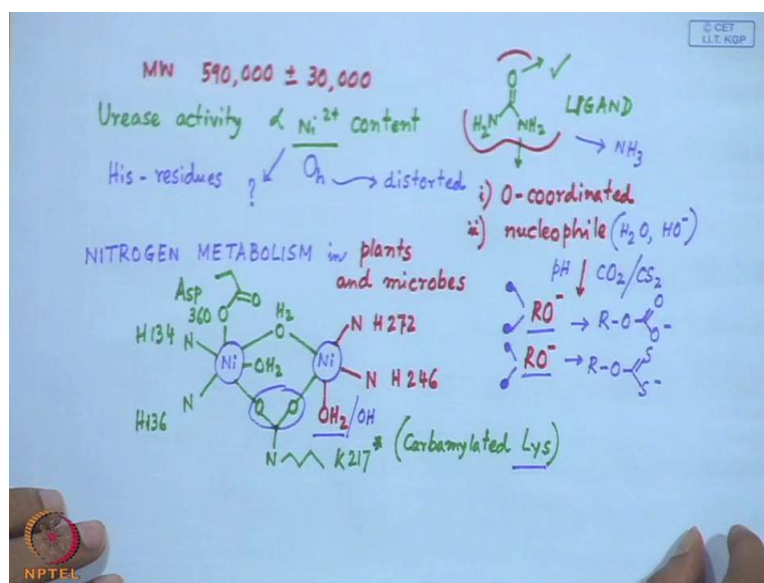 © CET
I.I.T. KGP
MW 590,000 ± 30,000
Urease activity ∝ Ni²⁺ content
His-residues ? Oh → distorted
O
H₂N NH₂
LIGAND
→ NH₃
i) O-coordinated
ii) nucleophile (H₂O, HO⁻)
pH ↓ CO₂/CS₂
RO⁻ → R-O-C O O⁻
RO⁻ → R-O-C S S⁻
NITROGEN METABOLISM in plants
and microbes
Asp
360
O
O
H₂
O
H134 N
N H272
Ni
OH₂
Ni
N
H136
N H246
O O
OH₂/OH
N K217* (Carbamylated Lys)
NPTEL